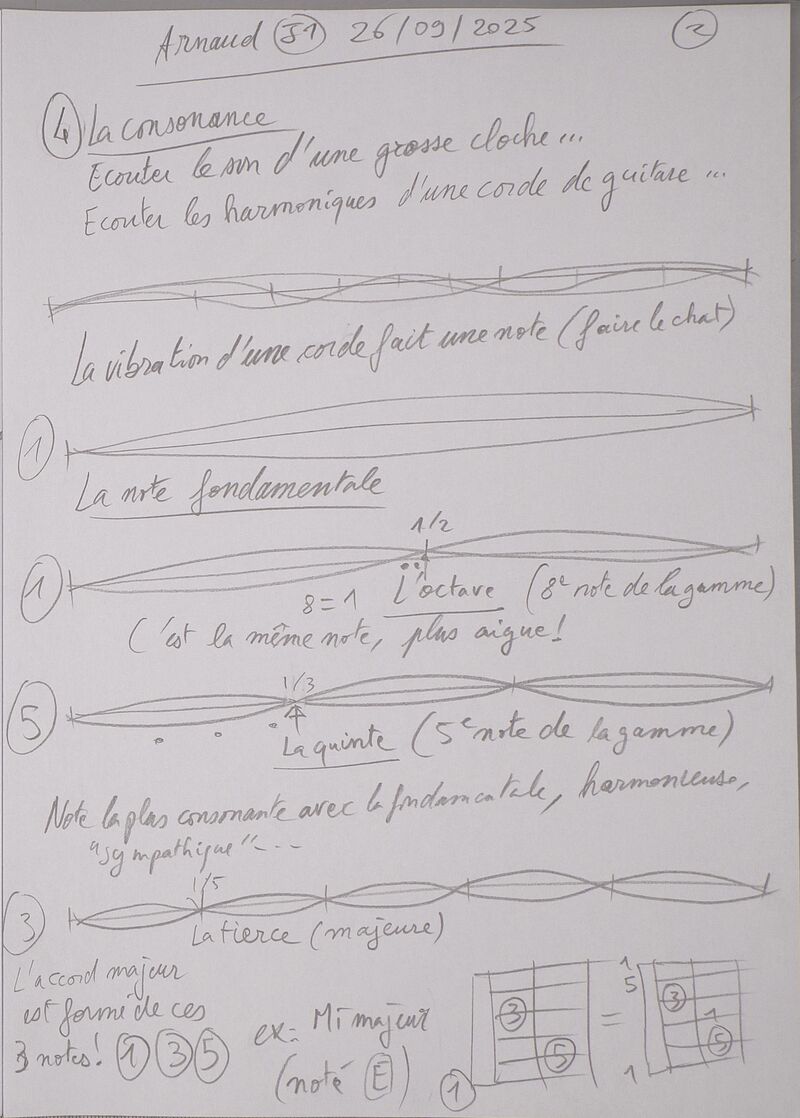 Arnaud S1 26/09/2025 2
4 La consonance
Ecouter le son d'une grosse cloche...
Ecouter les harmoniques d'une corde de guitare ...
La vibration d'une corde fait une note (faire le chat)
1
La note fondamentale
1/2
1
8=1 L'octave (8e note de la gamme)
C'est la même note, plus aigue!
1/3
5
La quinte (5e note de la gamme)
Note la plus consonante avec la fondamentale, harmonieuse,
"sympathique"---
1/5
3
La tierce (majeure)
L'accord majeur
est formé de ces
3 notes! 1 3 5
ex= Mi majeur
(noté E)
1 3 5 = 1 5 3 1 5 1